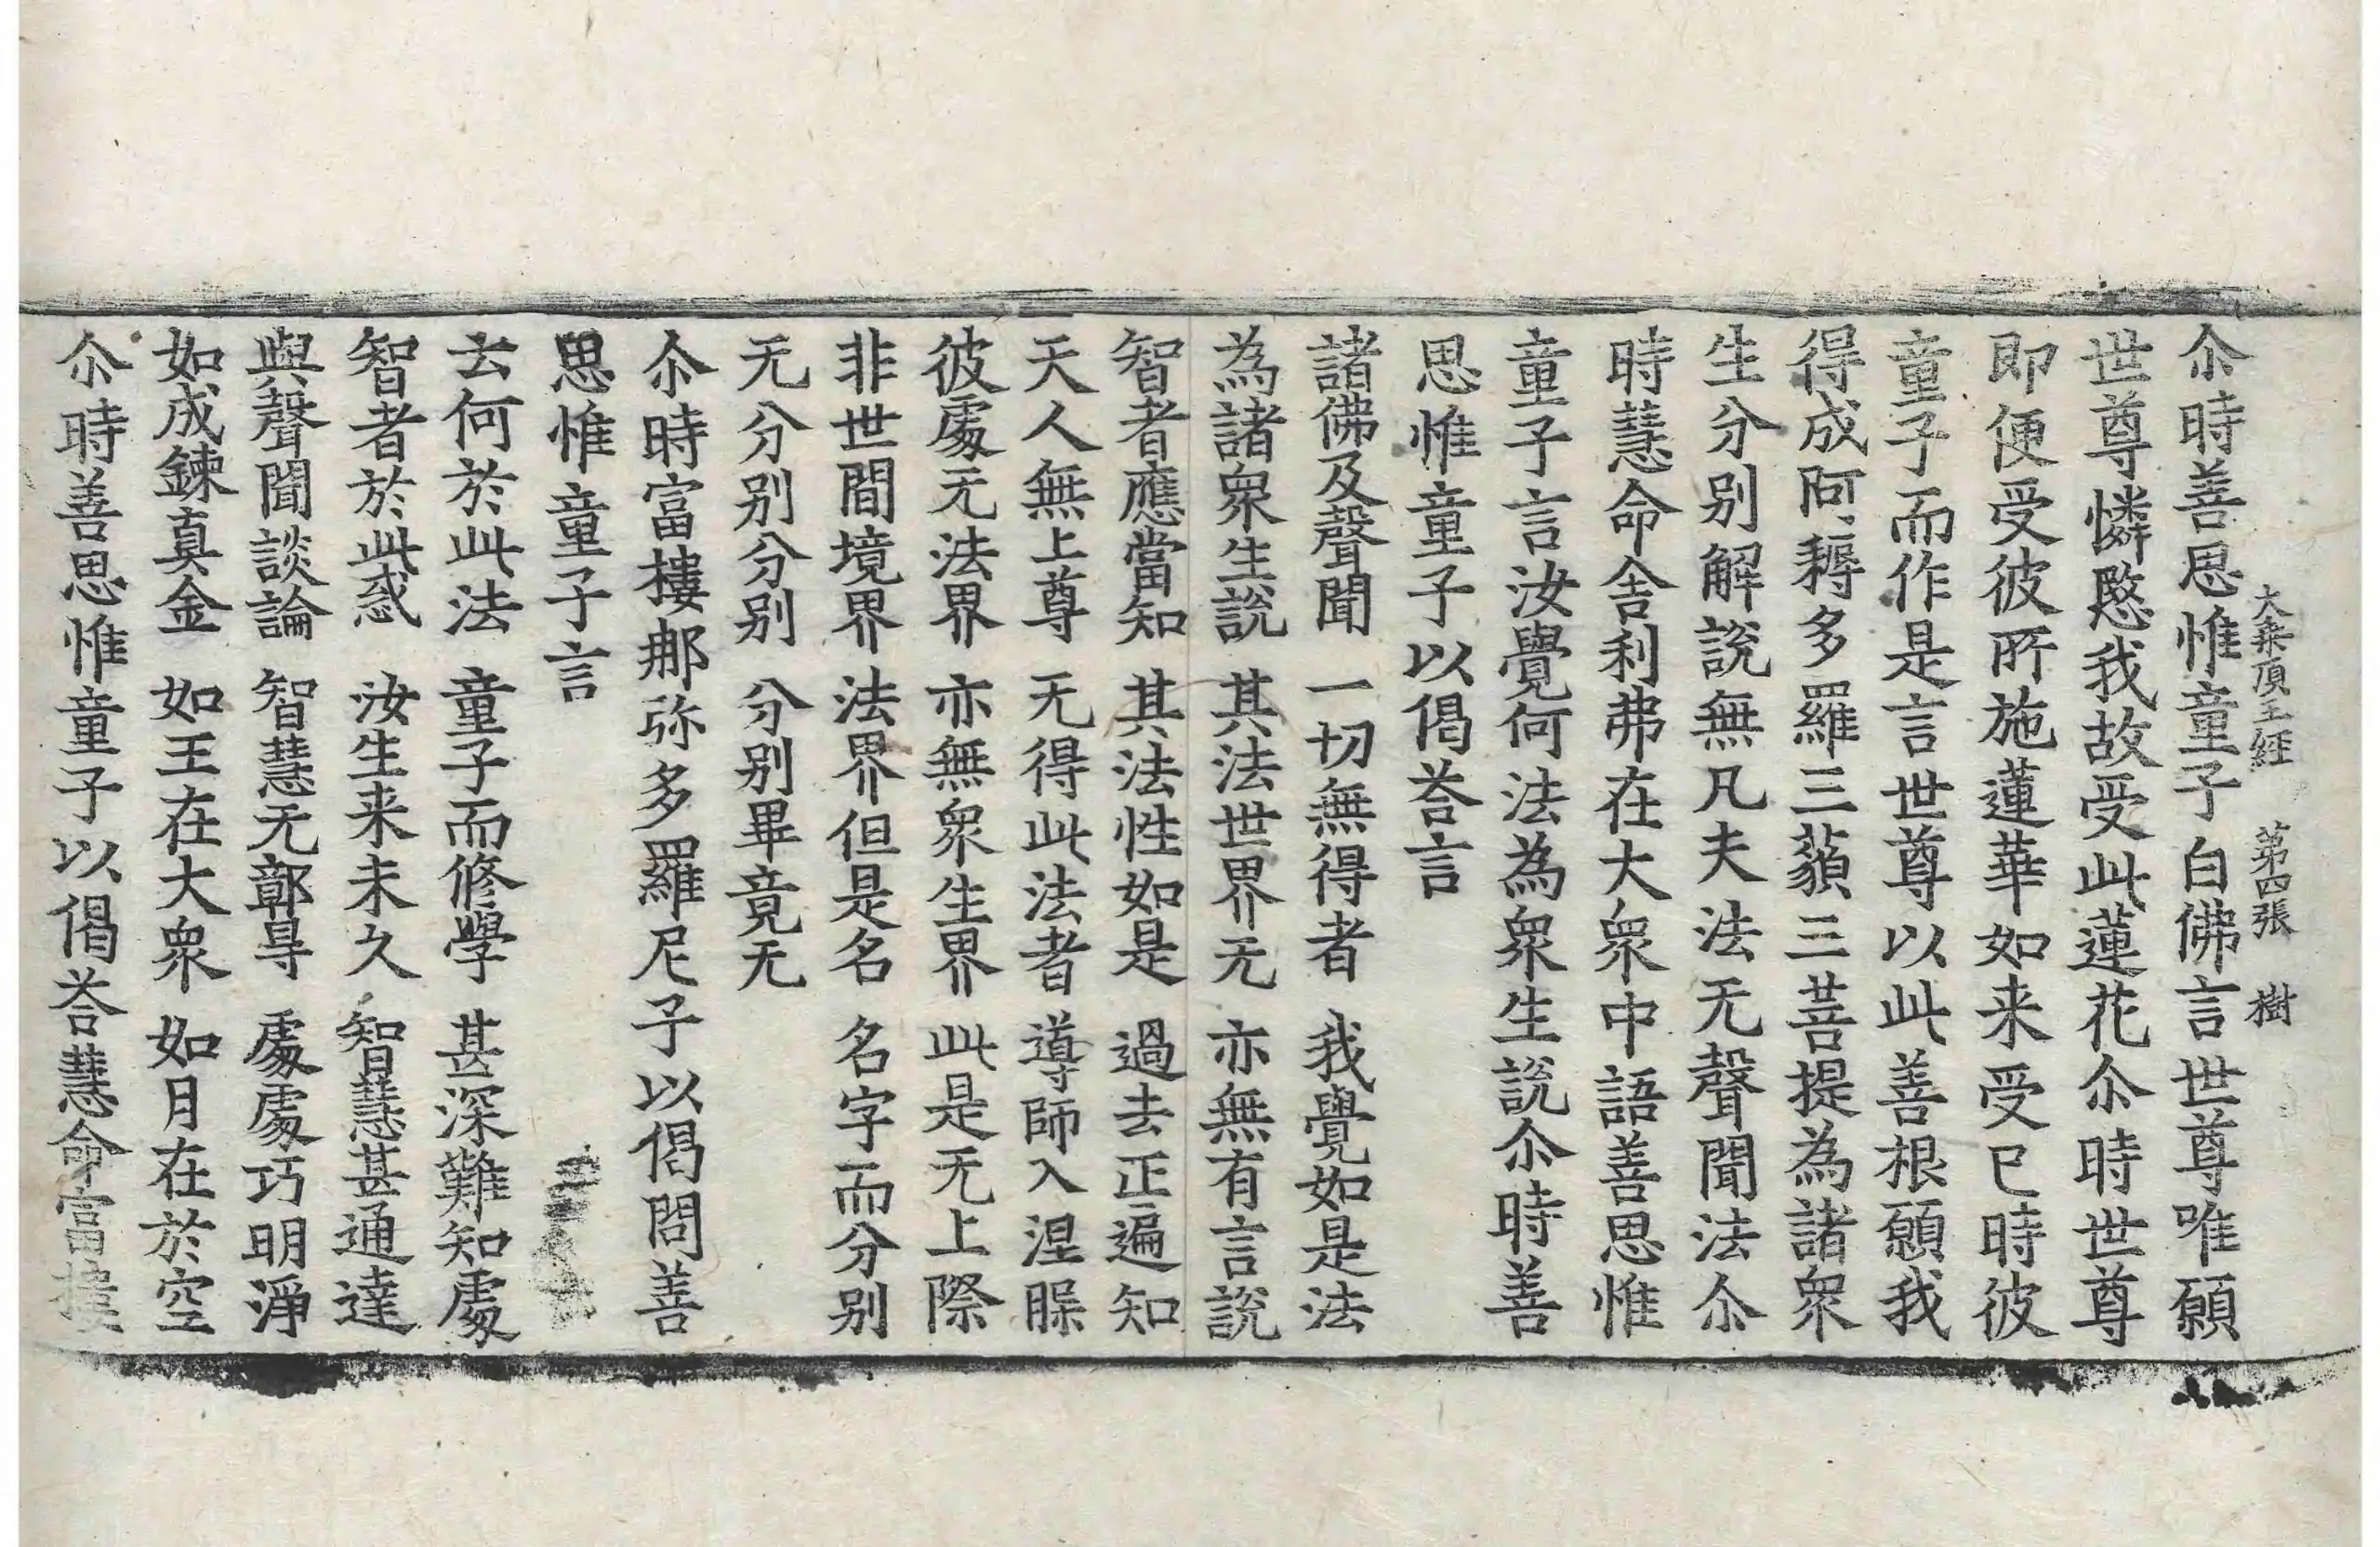 大乗頂王經 第四張 樹
尒時善思惟童子白佛言世尊唯願
世尊憐愍我故受此蓮花尒時世尊
即便受彼所施蓮華如来受已時彼
童子而作是言世尊以此善根願我
得成阿耨多羅三藐三菩提為諸衆
生分别解說無凡夫法无聲聞法尒
時慧命舎利弗在大衆中語善思惟
童子言汝覺何法為衆生說尒時善
思惟童子以偈荅言
諸佛及聲聞 一切無得者 我覺如是法
為諸衆生說 其法世界无 亦無有言說
智者應當知 其法性如是 過去正遍知
天人無上尊 无得此法者 導師入涅槃
彼處无法界 亦無衆生界 此是无上際
非世間境界 法界但是名 名字而分别
无分别分别 分别畢竟无
尒時富樓那弥多羅尼子以偈問善
思惟童子言
云何於此法 童子而修學 甚深難知處
智者於此惑 汝生来未久 智慧甚通達
與聲聞談論 智慧无鄣㝵 處處巧明淨
如成鍊真金 如王在大衆 如月在於空
尒時善思惟童子以偈荅慧命富樓